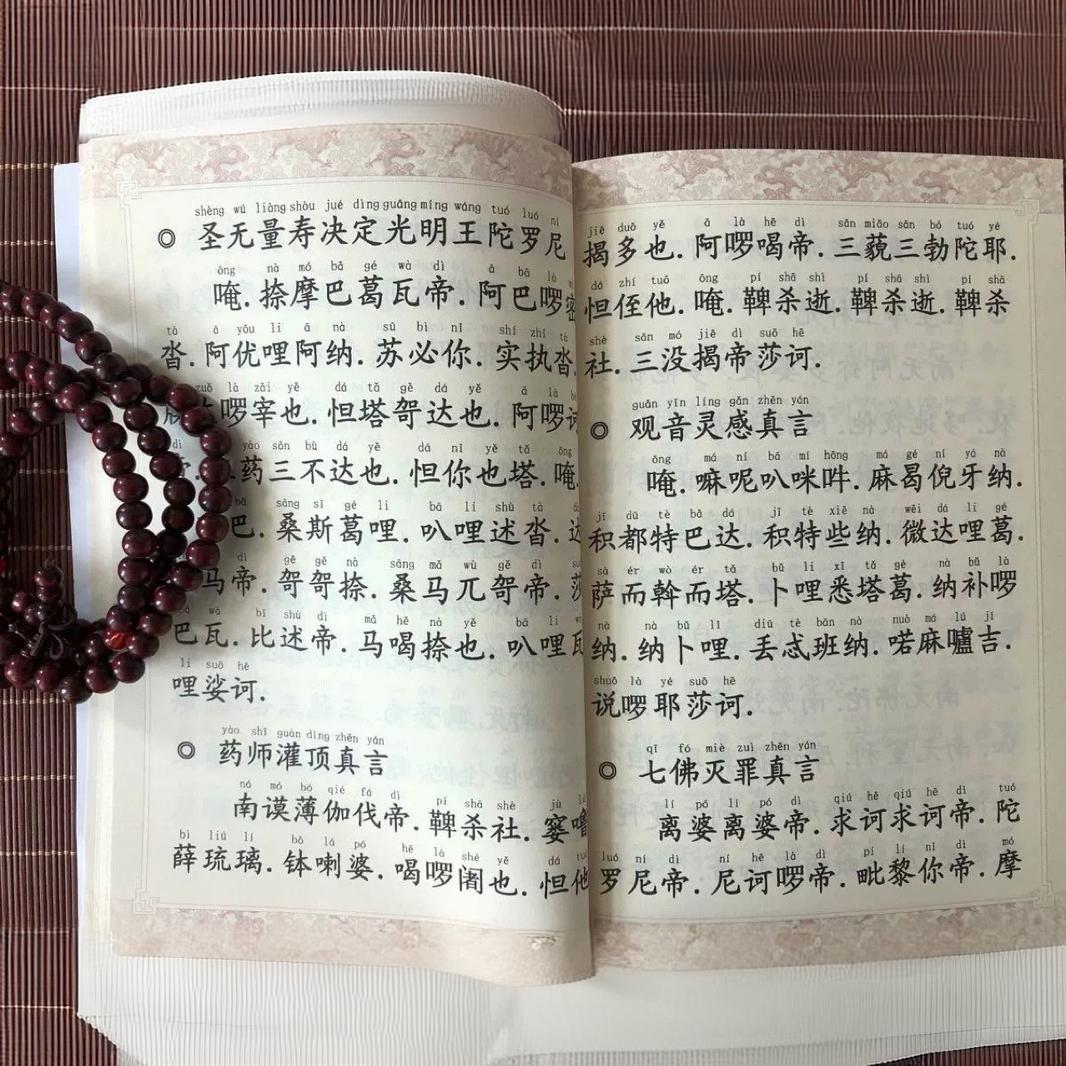 shèng wú liàng shòu jué dìng guāng míng wáng tuó luó ní
◎ 圣无量寿决定光明王陀罗尼
ōng nà mó bā gé wà dì ā bā la
唵. 捺摩巴葛瓦帝. 阿巴啰密
tà ā yōu li ā nà sū bì nǐ shí zhí tà
沓. 阿优哩阿纳. 苏必你. 实执沓.
zuǒ là zǎi yě dá tǎ gē dá yě ā là
啰宰也. 怛塔哿达也. 阿啰
dì yào sān bù dá yě dá nǐ yě tǎ ōng
药三不达也. 怛你也塔. 唵.
bā sāng sī gé li bā li shù tà
巴. 桑斯葛哩. 叭哩述沓.
dì gě gě nà sāng mǎ wù gě dì
马帝. 哿哿捺. 桑马兀哿帝.
wà bǐ shù dì mǎ hē nà yě bā li
巴瓦. 比述帝. 马喝捺也. 叭哩瓦
li suō hē
哩娑诃.
yào shī guàn dǐng zhēn yán
◎ 药师灌顶真言
ná mó bó qié fá dì pí shā shè jù lū
南谟薄伽伐帝. 鞞杀社. 窭噜
bì liú lí bō lá pó hē là shé yě dá tuō
薛琉璃. 钵喇婆. 喝啰阇也. 怛他
jiē duō yě ā là hē dì sān miǎo sān bó tuó yé
揭多也. 阿啰喝帝. 三藐三勃陀耶.
dá zhí tuō ōng pí shā shì pí shā shì pí shā
怛侄他. 唵. 鞞杀逝. 鞞杀逝. 鞞杀
shè sān mó jiē dì suō hē
社. 三没揭帝莎诃.
guān yīn líng gǎn zhēn yán
◎ 观音灵感真言
ōng má ní bā mí hōng má gé ní yá nà
唵. 嘛呢叭咪吽. 麻曷倪牙纳.
jī dū tè bā dá jī tè xiē nà wēi dá li gé
积都特巴达. 积特些纳. 微达哩葛.
sà ér wò ér tǎ bǔ lī xī tǎ gé nà bǔ là
萨而斡而塔. 卜哩悉塔葛. 纳补啰
nà nà bǔ lī diū tè bān nà nuò má lú jí
纳. 纳卜哩. 丢忒班纳. 喏麻嚧吉.
shuō là yé suō hē
说啰耶莎诃.
qī fó miè zuì zhēn yán
◎ 七佛灭罪真言
lí pó lí pó dì qiú hē qiú hē dì tuó
离婆离婆帝. 求诃求诃帝. 陀
luó ní dì ní hē là dì pí lí nǐ dì mó
罗尼帝. 尼诃啰帝. 毗黎你帝. 摩